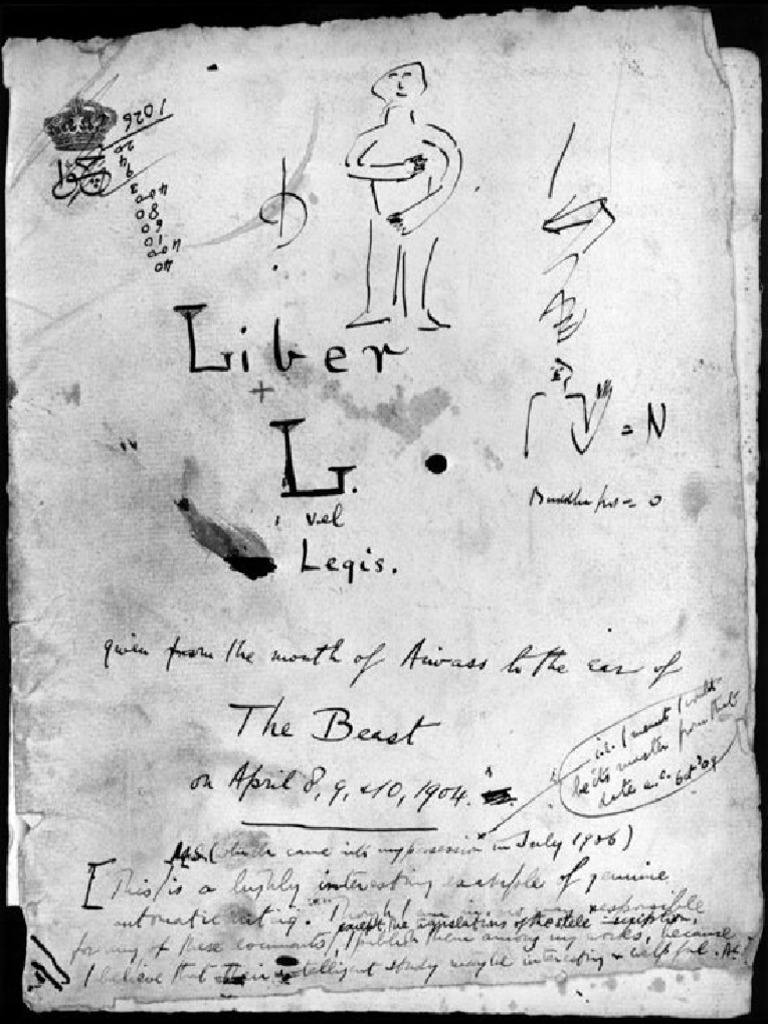 1026
20
4
9
3
400
80
60
10
400
40
Liber
+
L.
vel
Legis.
= N
= 0
given from the mouth of Aiwass to the ear of
The Beast
on April 8, 9, & 10, 1904.
i.e. I meant I would
be its master from that
date
MS (which came into my possession in July 1906)
[This is a highly interesting example of genuine
automatic writing. Though I am in no way responsible
except the translations of the stele inscription,
for any of these documents, I publish them among my works, because
I believe that their intelligent study may be interesting & helpful. A.C.]